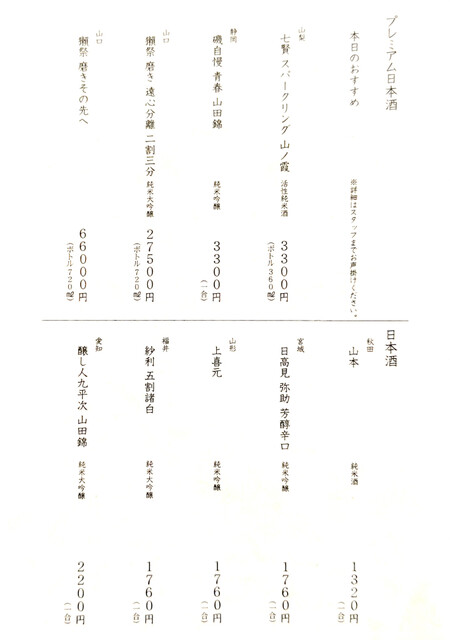 プレミアム日本酒
本日のおすすめ ※詳細はスタッフまでお声掛けください。
山梨
七賢 スパークリング 山ノ霞 活性純米酒 3300円
(ボトル360㎖)
静岡
磯自慢 青春 山田錦 純米吟醸 3300円
(一合)
山口
獺祭 磨き 遠心分離 二割三分 純米大吟醸 27500円
(ボトル720㎖)
山口
獺祭 磨きその先へ 66000円
(ボトル720㎖)
日本酒
秋田
山本 純米酒 1320円
(一合)
宮城
日高見 弥助 芳醇辛口 純米吟醸 1760円
(一合)
山形
上喜元 純米吟醸 1760円
(一合)
福井
紗利 五割諸白 純米大吟醸 1760円
(一合)
愛知
醸し人九平次 山田錦 純米大吟醸 2200円
(一合)